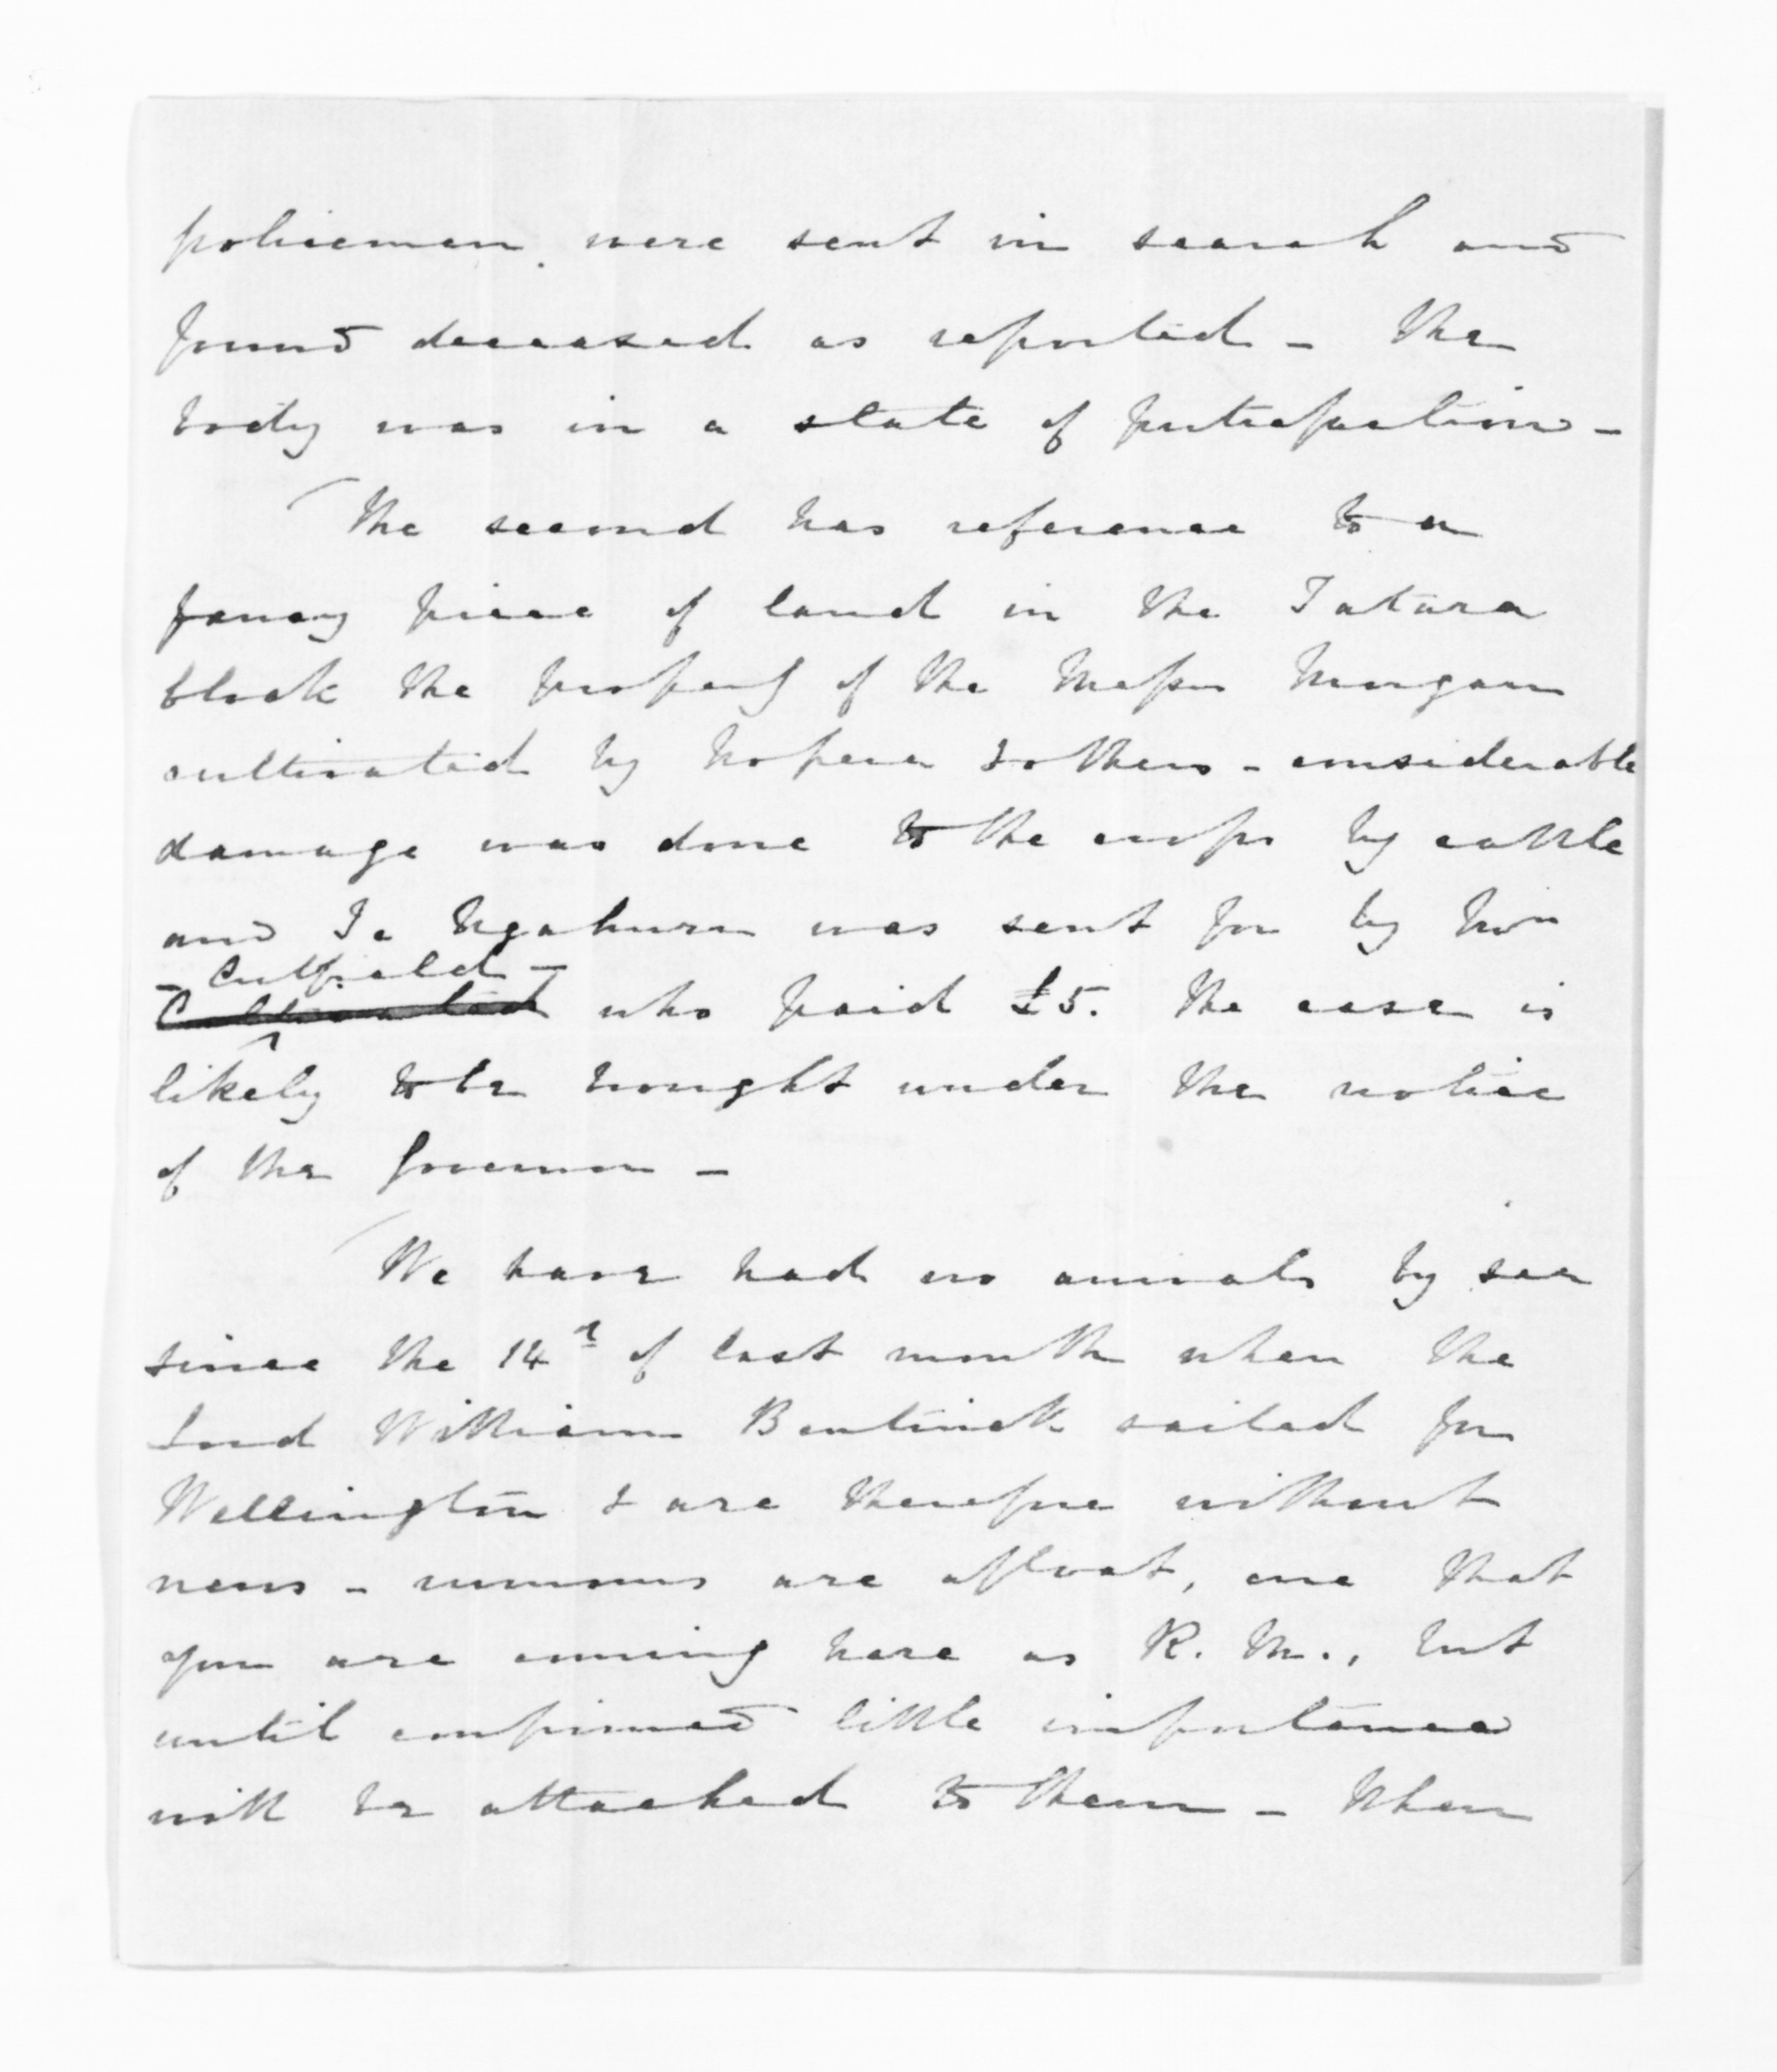 policemen were sent in search and
found deceased as reported - The
body was in a state of putrefaction -
The second has reference to a
fancy piece of land in the Tatara
block the property of the Messrs
cultivated by Hopena & others - considerable
damage was done to the crops by cattle
and Te Ngahuru was sent for by
- Cutfield -
who paid £5. The case is
likely to be brought under the notice
of the Governor -
We have had no arrivals by sea
since the 14th of last month when the
Lord William Bentinck sailed for
Wellington & are therefore without
news - rumours are afloat, one that
you are coming here as R. M., but
until confirmed little importance
will be attached to them - When